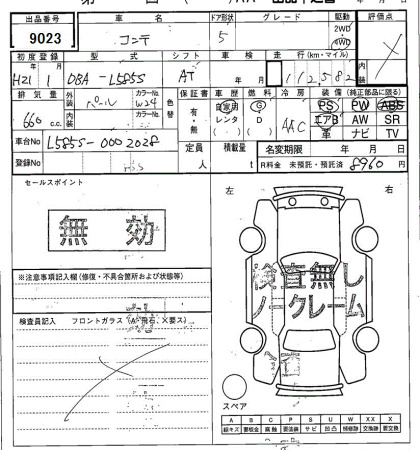 出品番号 車名 ドア形状 グレード 駆動 評価点
9023 コンテ 5 2WD 4WD
初度登録 型式 シフト 車検 走行(km・マイル) 内装
年 月 年 月
H21 1 DBA-L585S AT 112,582
排気量 外装 カラーNo. 色替 保証書 車歴 燃費 冷房 装備(純正部品に限る)
660 c.c. パール W24 有・無 自家用 G AAC PS PW ABS
内装 カラーNo. レンタ D エアB AW SR
革 ナビ TV
車台No L585S-0002028 定員 積載量 名変期限 年 月 日
登録No 人 t R料金 未預託・預託済 8960 円
セールスポイント 左 右
無効
検査無し
ノークレーム
※注意事項記入欄(修復・不具合箇所および状態等)
検査員記入 フロントガラス(A・飛石、×要ス)
スペア
A B C P S U W XX X
線キズ 要鈑金 腐触 要塗装 サビ 凹凸 補修跡 交換跡 要交換